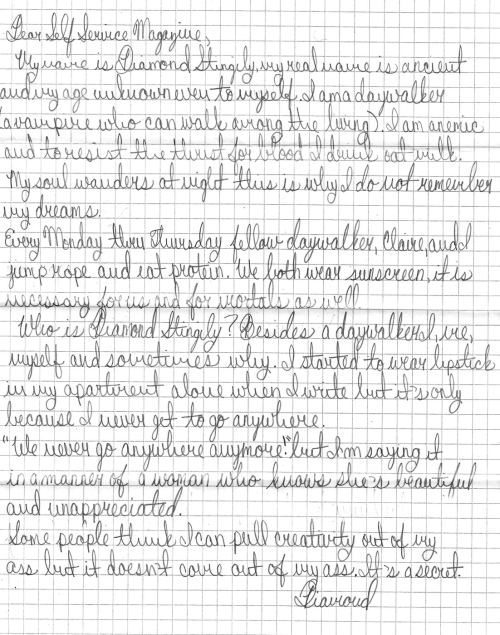 Dear Self Service Magazine,
My name is Diamond Stingily, my real name is ancient
and my age unknown even to myself. I am a daywalker
(a vampire who can walk among the living). I am anemic
and to resist the thirst for blood I drink oat milk.
My soul wanders at night this is why I do not remember
my dreams.
Every Monday thru Thursday fellow daywalker, Claire, and I
jump rope and eat protein. We both wear sunscreen, it is
necessary for us and for mortals as well.
Who is Diamond Stingily? Besides a daywalker I, me,
myself and sometimes why. I started to wear lipstick
in my apartment alone when I write but it's only
because I never get to go anywhere.
"We never go anywhere anymore!" but I'm saying it
in a manner of a woman who knows she's beautiful
and unappreciated.
Some people think I can pull creativity out of my
ass but it doesn't come out of my ass. It's a secret.
Diamond